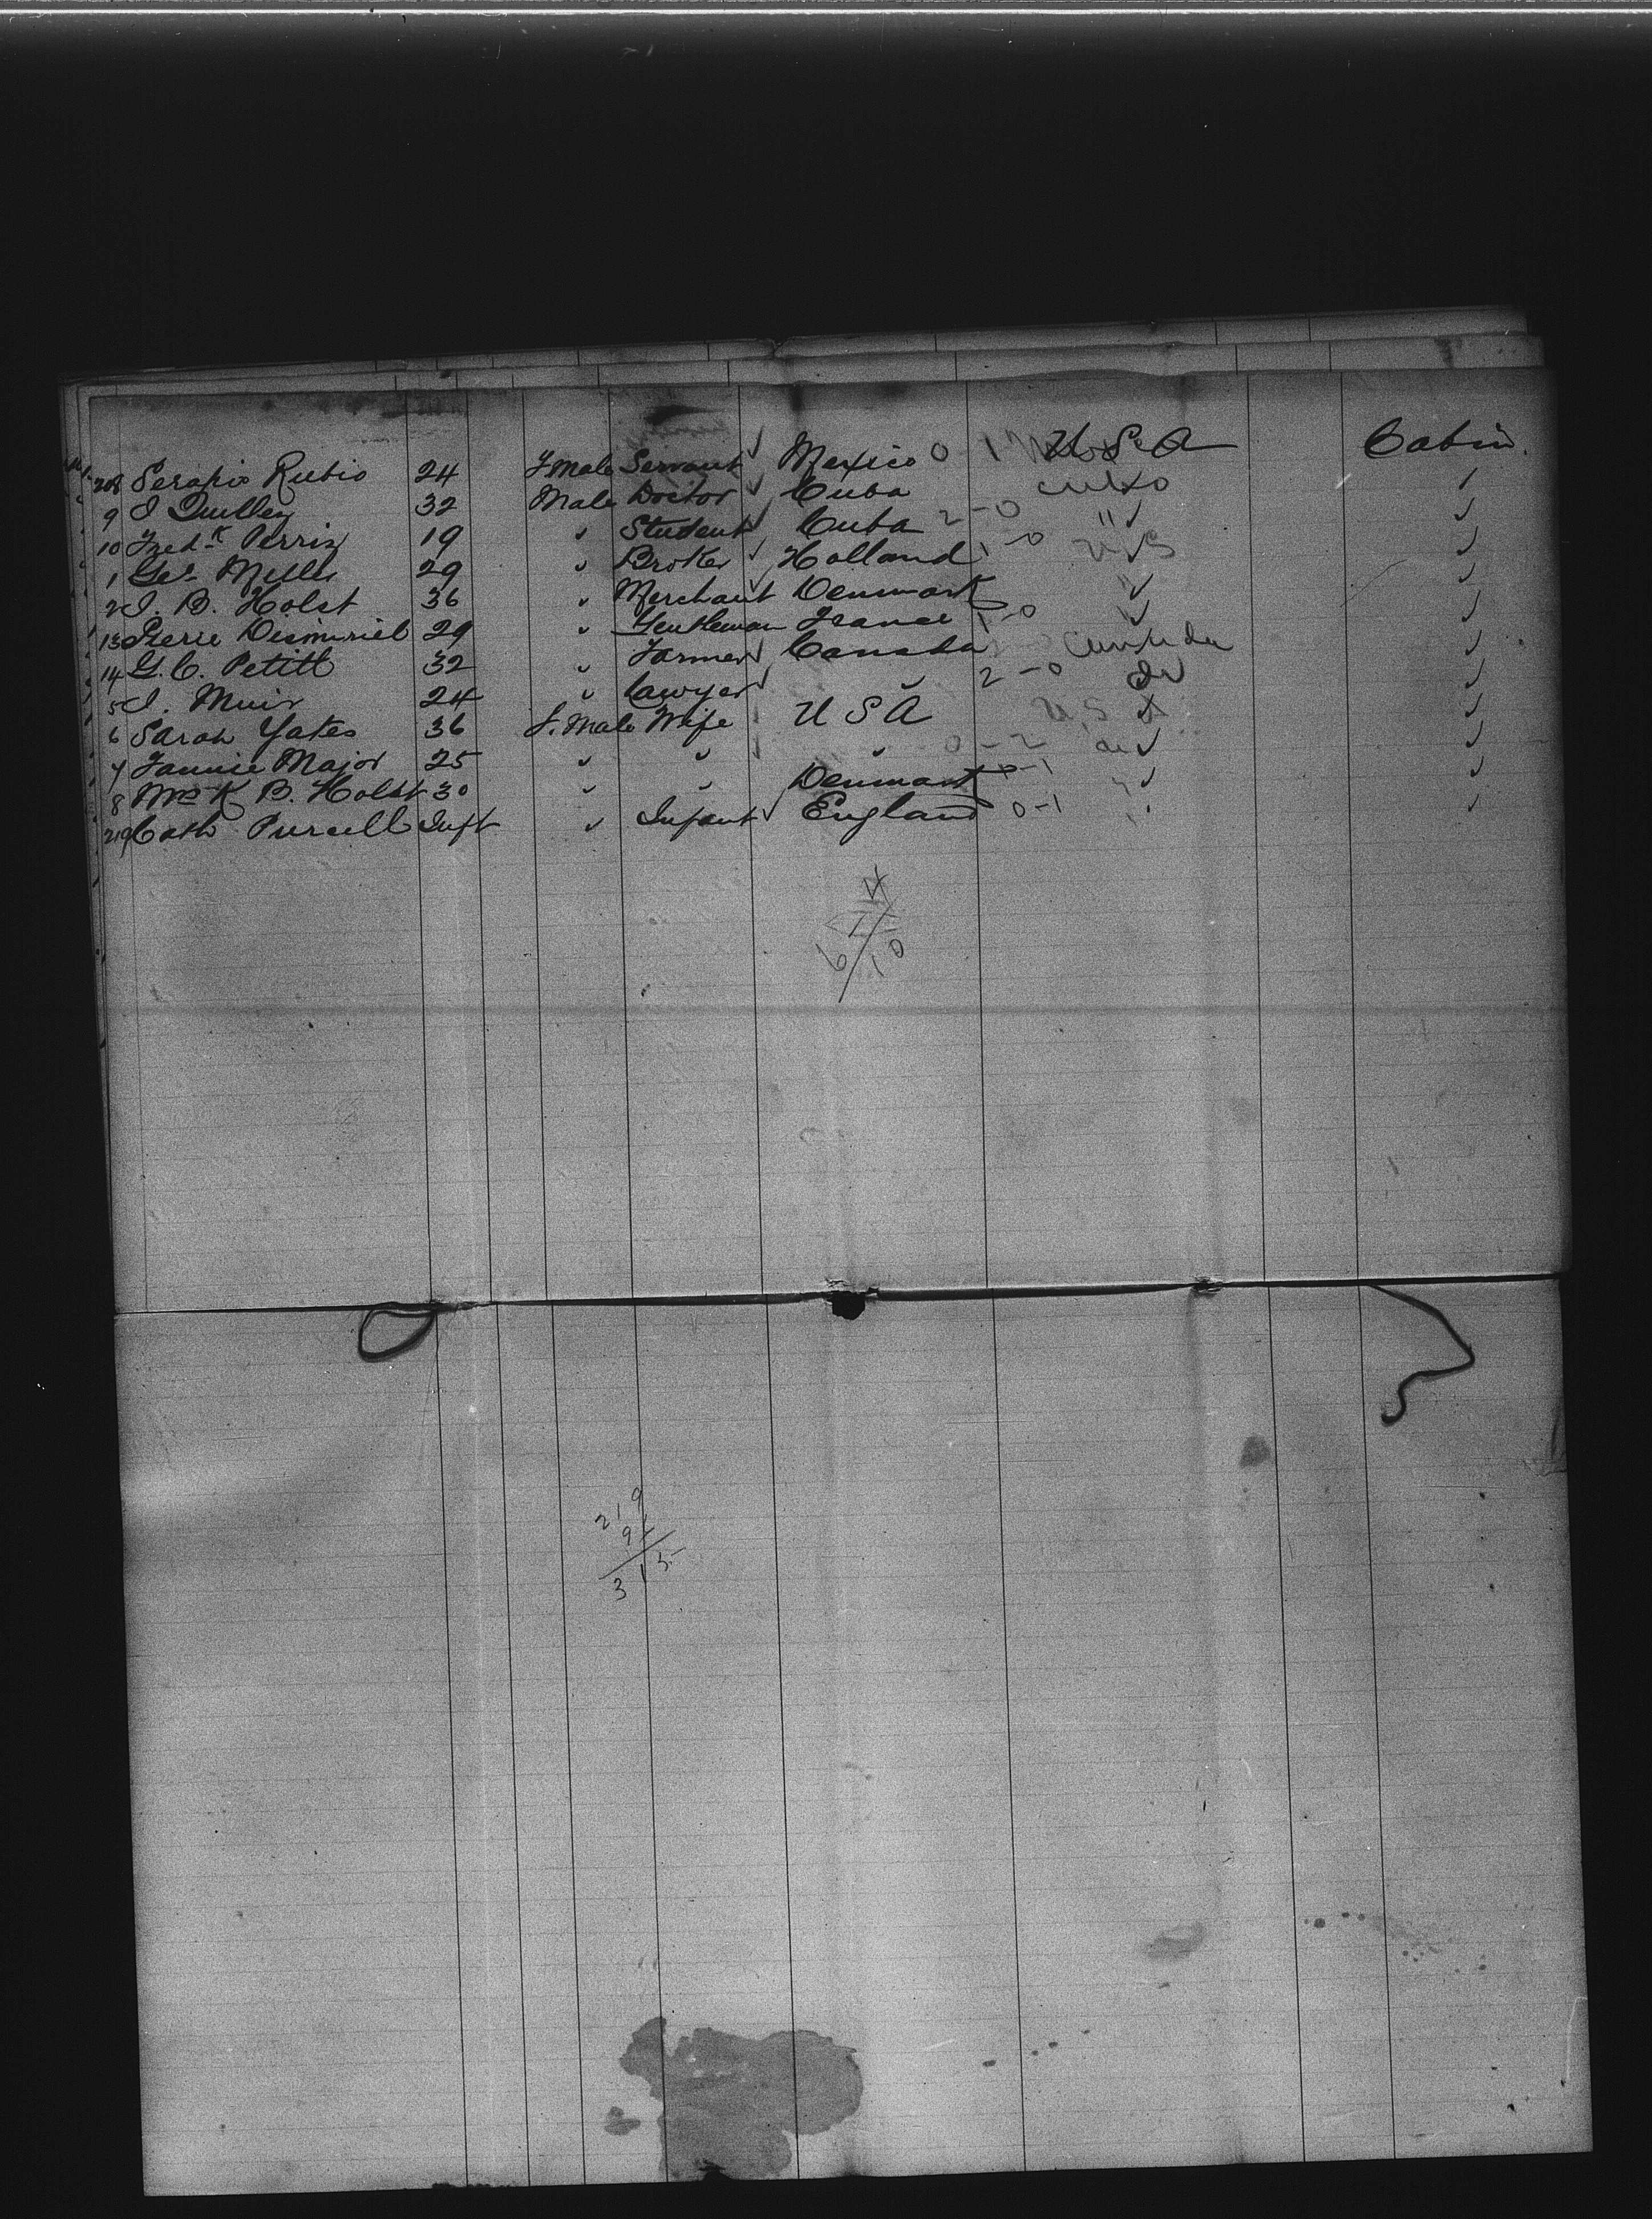 208 Serapio Rubio 24 Fmale Servant ✓ Mexico 0 1 U S A Cabin.
9 J Quilley 32 Male Doctor ✓ Cuba cuba ✓
10 Fred-k Perriz 19 " Student ✓ Cuba 2-0 " ✓ ✓
1 Geo. Miller 29 " Broker ✓ Holland 1-0 U S ✓ ✓
2 J. B. Holst 36 " Merchant Denmark ✓ ✓
13 Pierre 29 " Gentleman France 1-0 ✓ ✓
14 G. C. Petitt 32 " Farmer ✓ Canada Canada ✓
5 J. Muir 24 " Lawyer ✓ " 2-0 do ✓
6 Sarah Yates 36 F. Male Wife U S A U S A ✓
7 Fannie Major 25 " " " 0-2 do ✓ ✓
8 Mrs K B. Holst 30 " " Denmark 0-1 " ✓ ✓
219 Cath Purcell Inft " Infant ✓ England 0-1 " ✓
6 4
10
219
9
313